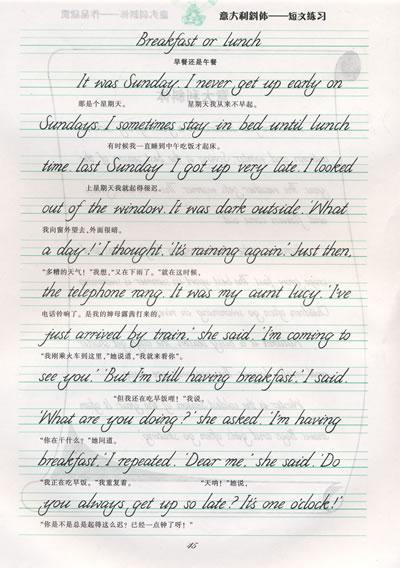 意大利斜体——短文练习
Breakfast or lunch
早餐还是午餐
It was Sunday. I never get up early on
那是个星期天。 星期天我从来不早起。
Sundays. I sometimes stay in bed until lunch
有时候我一直睡到中午吃饭才起床。
time. last Sunday I got up very late. I looked
上星期天我就起得很迟。
out of the window. It was dark outside. 'What
我向窗外望去,外面很暗。
a day!' I thought. 'It's raining again.' Just then,
“多糟的天气!”我想,“又在下雨了。”就在这时候,
the telephone rang. It was my aunt lucy. 'I've
电话铃响了。是我的婶母露茜打来的。
just arrived by train,' she said. 'I'm coming to
“我刚乘火车到这里,”她说道,“我就来看你”。
see you.' 'But I'm still having breakfast.' I said.
“但我还在吃早饭哩!”我说。
'What are you doing?' she asked. 'I'm having
“你在干什么?”她问道。
breakfast.' I repeated. 'Dear me,' she said. 'Do
“我正在吃早饭。”我重复着。 “天呐!”她说,
you always get up so late? It's one o'clock!'
“你是不是总是起得这么迟?已经一点钟了呀!”
45